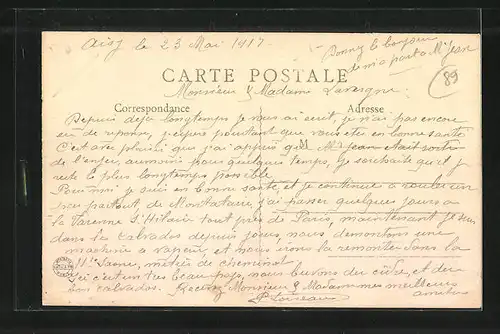 le 23 Mai 1917
Donnez le bonjour
de ma part a Mr Jean
89
CARTE POSTALE
Monsieur & Madame
Correspondance
Adresse
Depuis déjà longtemps je vous ai ecrit, je n'ai pas encore
eu de reponse, j'espere pourtant que vous etes en bonne santé
C'est avec plaisir que j'ai appris que Mr Jean etait sorti
M
de l'enfer, au moins pour quelques temps, je souhaite qu'il y
reste le plus longtemps possible
Pour moi je suis en bonne santé, et je continue a rouler un
peu partout, de Montataire, j'ai passer quelques jours a
la Varenne St Hilaire tout près de Paris, maintenant je suis
dans le Calvados depuis jours, nous demontons une
machine a vapeur, et nous irons la remonter dans la
Hte Saone, métiers de cheminot
Ici c'est un tres beau pays, nous buvons du cidre, et du
bon calvados. Recevez Monsieur & Madame mes meilleurs
amitiés